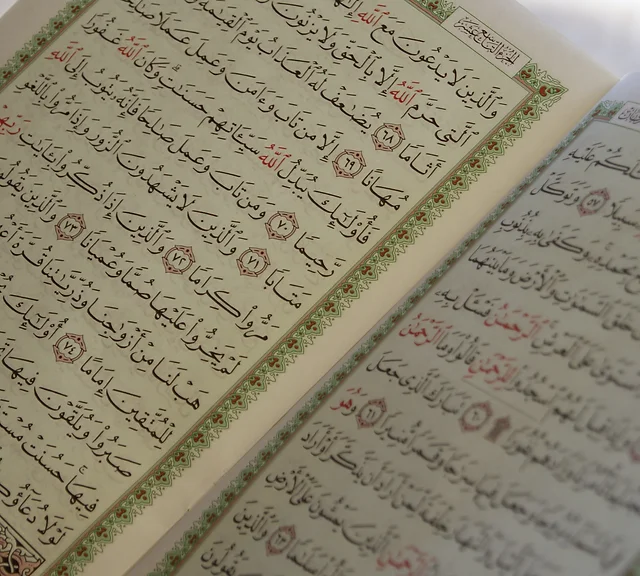 عَلَيْهِ
سَبِيلًا ٥٧ وَتَوَكَّلْ
بِحَمْدِهِۦ وَكَفَىٰ بِهِۦ بِذُنُوبِ
خَلَقَ ٱلسَّمَٰوَٰتِ وَٱلْأَرْضَ وَمَا بَيْنَهُمَا
ٱسْتَوَىٰ عَلَى ٱلْعَرْشِ ٱلرَّحْمَٰنُ فَسْـَٔلْ بِهِۦ
قِيلَ لَهُمُ ٱسْجُدُوا۟ لِلرَّحْمَٰنِ قَالُوا۟ وَمَا ٱلرَّحْمَٰنُ
۩ ٦٠ تَبَارَكَ ٱلَّذِى جَعَلَ
وَجَعَلَ فِيهَا سِرَٰجًا وَقَمَرًا مُّنِيرًا ٦١ وَهُوَ
خِلْفَةً لِّمَنْ أَرَادَ أَن يَذَّكَّرَ أَوْ أَرَادَ
ٱلرَّحْمَٰنِ ٱلَّذِينَ يَمْشُونَ عَلَى ٱلْأَرْضِ
سَلَٰمًا ٦٣ وَٱلَّذِينَ
يَقُولُونَ
الجزء التاسع عشر
وَٱلَّذِينَ لَا يَدْعُونَ مَعَ ٱللَّهِ إِلَٰهًا
ٱلَّتِى حَرَّمَ ٱللَّهُ إِلَّا بِٱلْحَقِّ وَلَا يَزْنُونَ
أَثَامًا ٦٨ يُضَٰعَفْ لَهُ ٱلْعَذَابُ يَوْمَ ٱلْقِيَٰمَةِ
مُهَانًا ٦٩ إِلَّا مَن تَابَ وَءَامَنَ وَعَمِلَ عَمَلًا صَٰلِحًا
فَأُو۟لَٰٓئِكَ يُبَدِّلُ ٱللَّهُ سَيِّـَٔاتِهِمْ حَسَنَٰتٍ ۗ وَكَانَ ٱللَّهُ غَفُورًا
رَّحِيمًا ٧٠ وَمَن تَابَ وَعَمِلَ صَٰلِحًا فَإِنَّهُۥ يَتُوبُ إِلَى ٱللَّهِ
مَتَابًا ٧١ وَٱلَّذِينَ لَا يَشْهَدُونَ ٱلزُّورَ وَإِذَا مَرُّوا۟ بِٱللَّغْوِ
مَرُّوا۟ كِرَامًا ٧٢ وَٱلَّذِينَ إِذَا ذُكِّرُوا۟ بِـَٔايَٰتِ رَبِّهِمْ
لَمْ يَخِرُّوا۟ عَلَيْهَا صُمًّا وَعُمْيَانًا ٧٣ وَٱلَّذِينَ يَقُولُونَ
هَبْ لَنَا مِنْ أَزْوَٰجِنَا وَذُرِّيَّٰتِنَا قُرَّةَ
لِلْمُتَّقِينَ إِمَامًا ٧٤ أُو۟لَٰٓئِكَ
صَبَرُوا۟ وَيُلَقَّوْنَ فِيهَا
فِيهَا ۚ حَسُنَتْ
لَوْلَا دُعَآؤُكُمْ